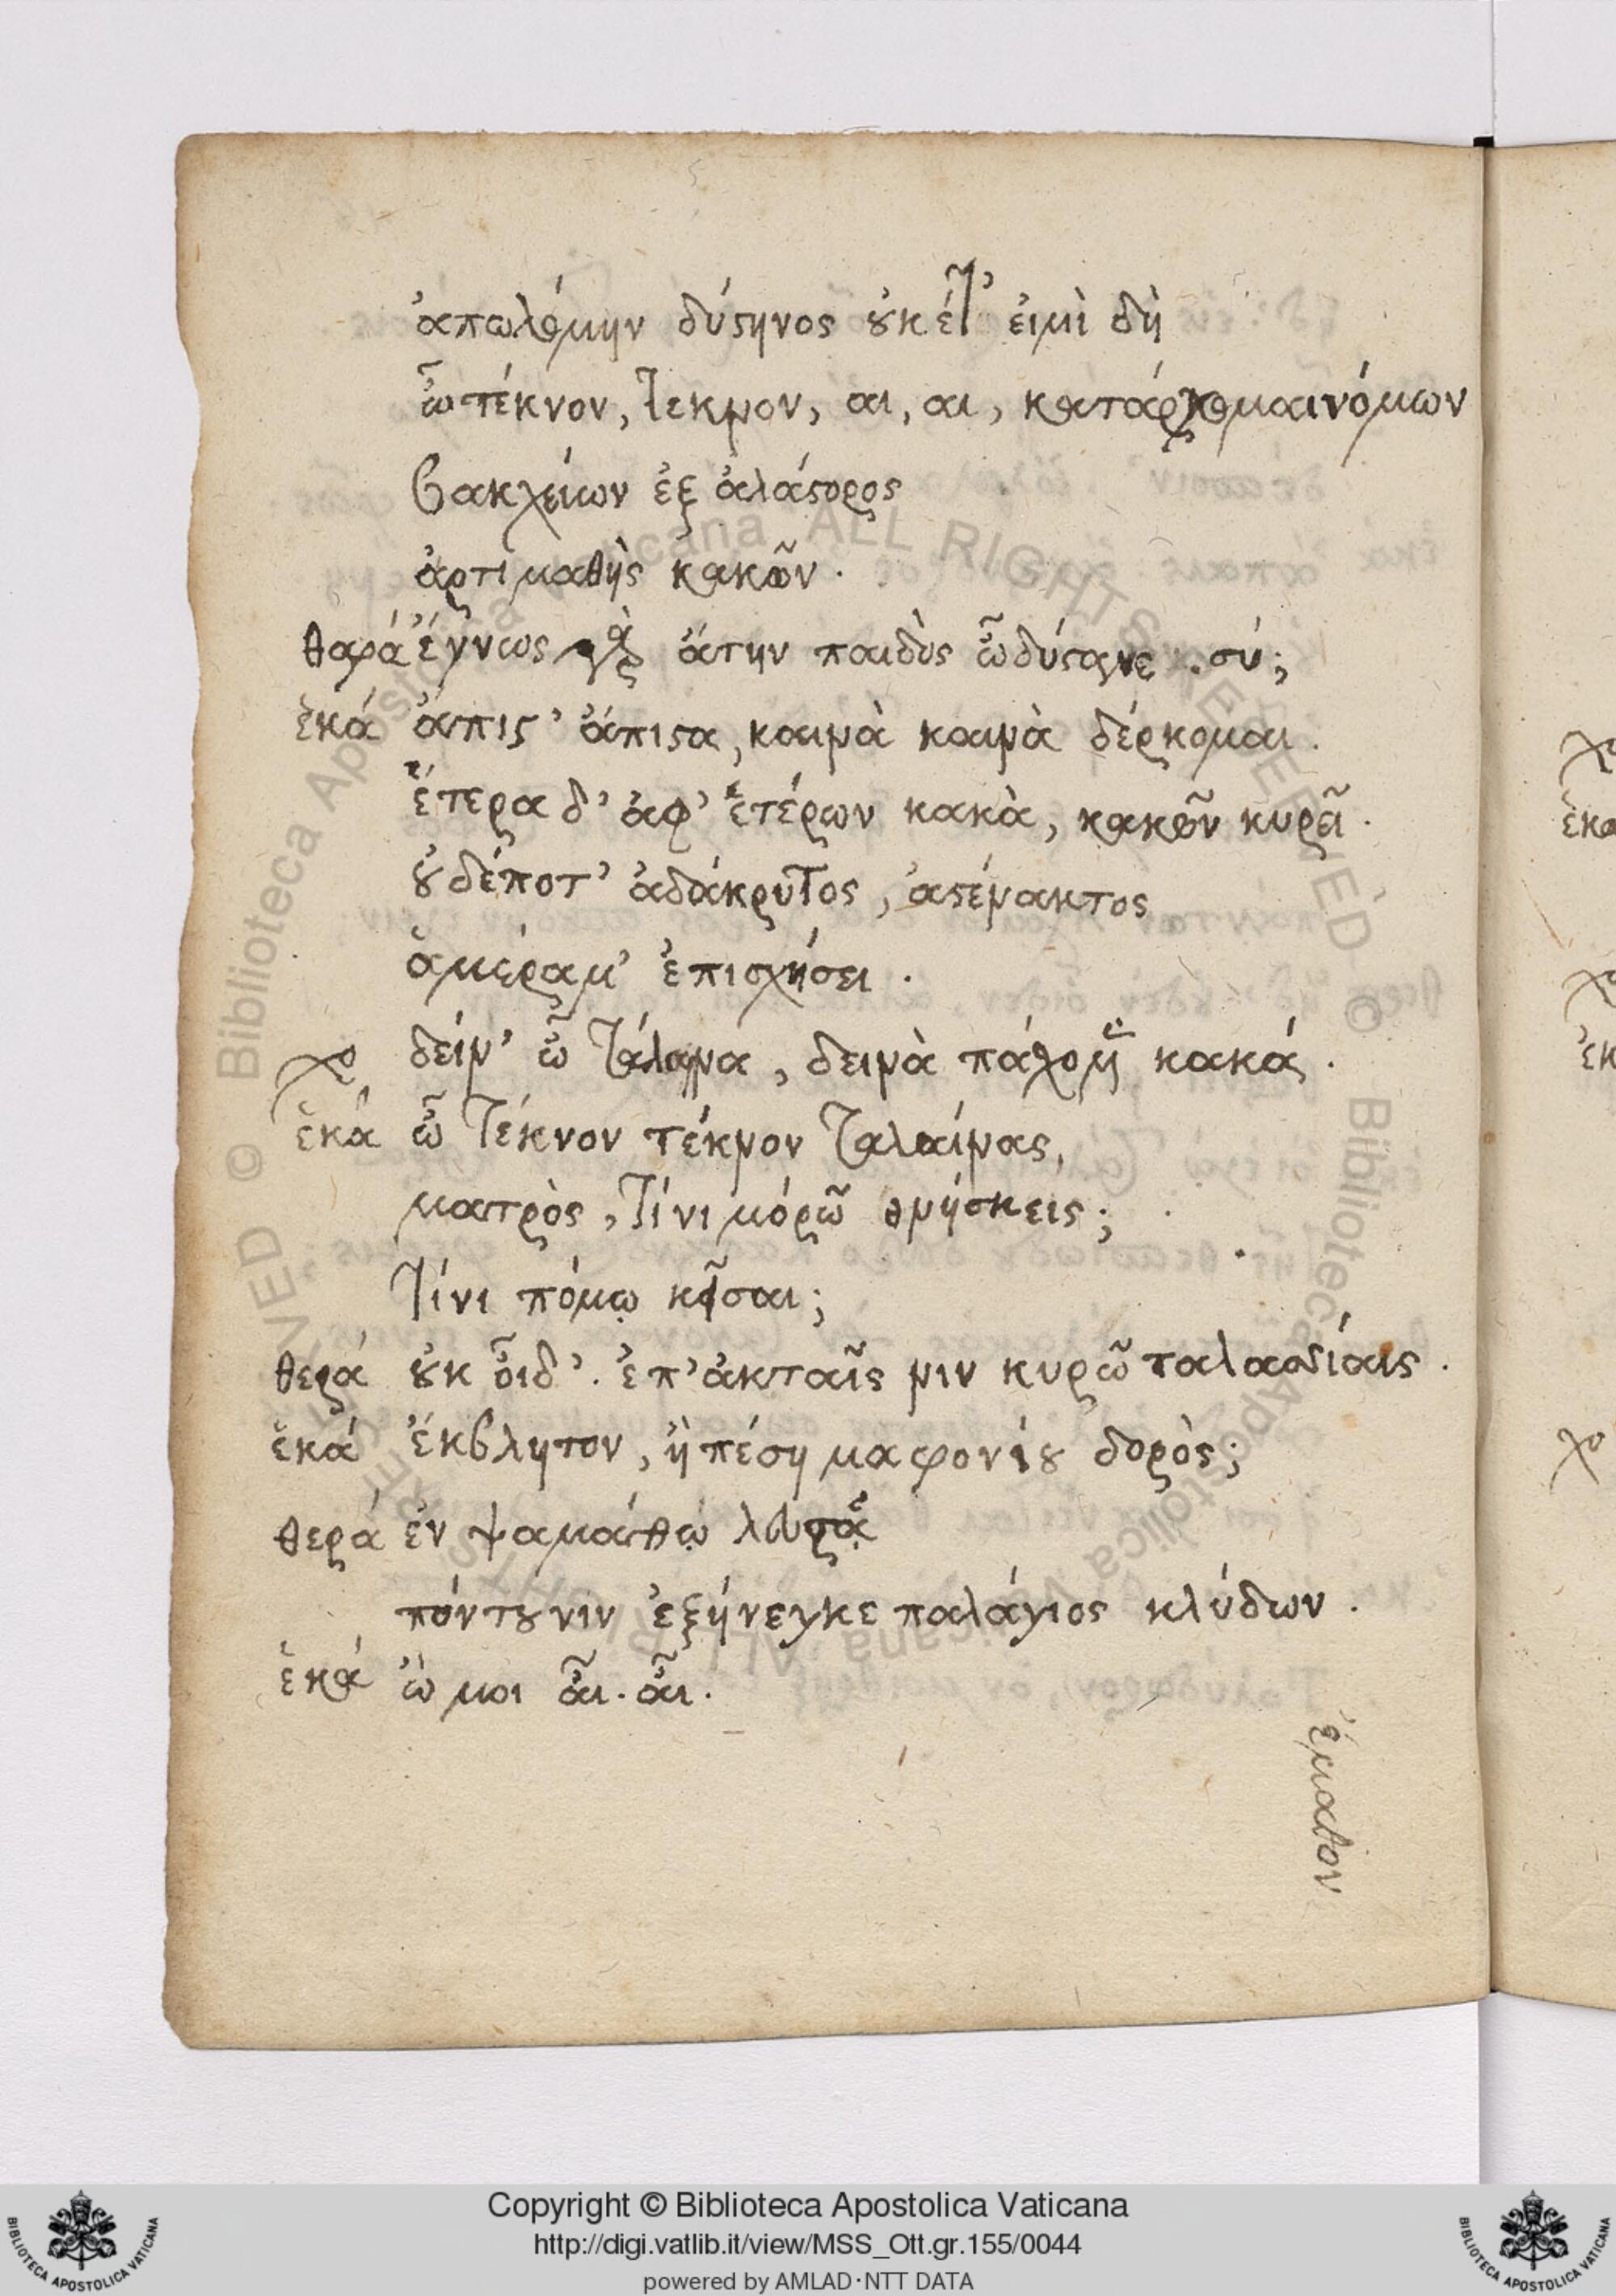 ἀπωλόμην δύστηνος οὐκέτ' εἰμὶ δὴ
ὦ τέκνον, τέκνον, αι, αι, κατάρχομαι νόμων
βακχείων ἐξ ἀλάστορος
ἀρτιμαθὴς κακῶν.
θαρά ἔγνως γὰρ ἄτην παιδὸς ὦ δύστανε . σύ;
ἑκά ἄπιστ' ἄπιστα, καινὰ καινὰ δέρκομαι.
ἕτερα δ' ἀφ' ἑτέρων κακὰ, κακῶν κυρεῖ.
οὐδέποτ' ἀδάκρυτος, ἀστένακτος
ἁμέρα μ' ἐπισχήσει.
χο δείν' ὦ τάλαινα, δεινὰ πάσχομεν κακά.
ἑκά ὦ τέκνον τέκνον ταλαίνας,
ματρὸς, τίνι μόρῳ θνήσκεις;
τίνι πότμῳ κεῖσαι;
θερά οὐκ οἶδ'. ἐπ' ἀκταῖς νιν κυρῶ θαλασσίαις.
ἑκά ἔκβλητον, ἢ πέσημα φονίου δορὸς;
θερά ἐν ψαμάθῳ λευρᾷ
πόντου νιν ἐξήνεγκε παλάγιος κλύδων.
ἑκά ὤ μοι αἶ. αἶ.
ἔμαθον
Copyright © Biblioteca Apostolica Vaticana
http://digi.vatlib.it/view/MSS_Ott.gr.155/0044
powered by AMLAD·NTT DATA